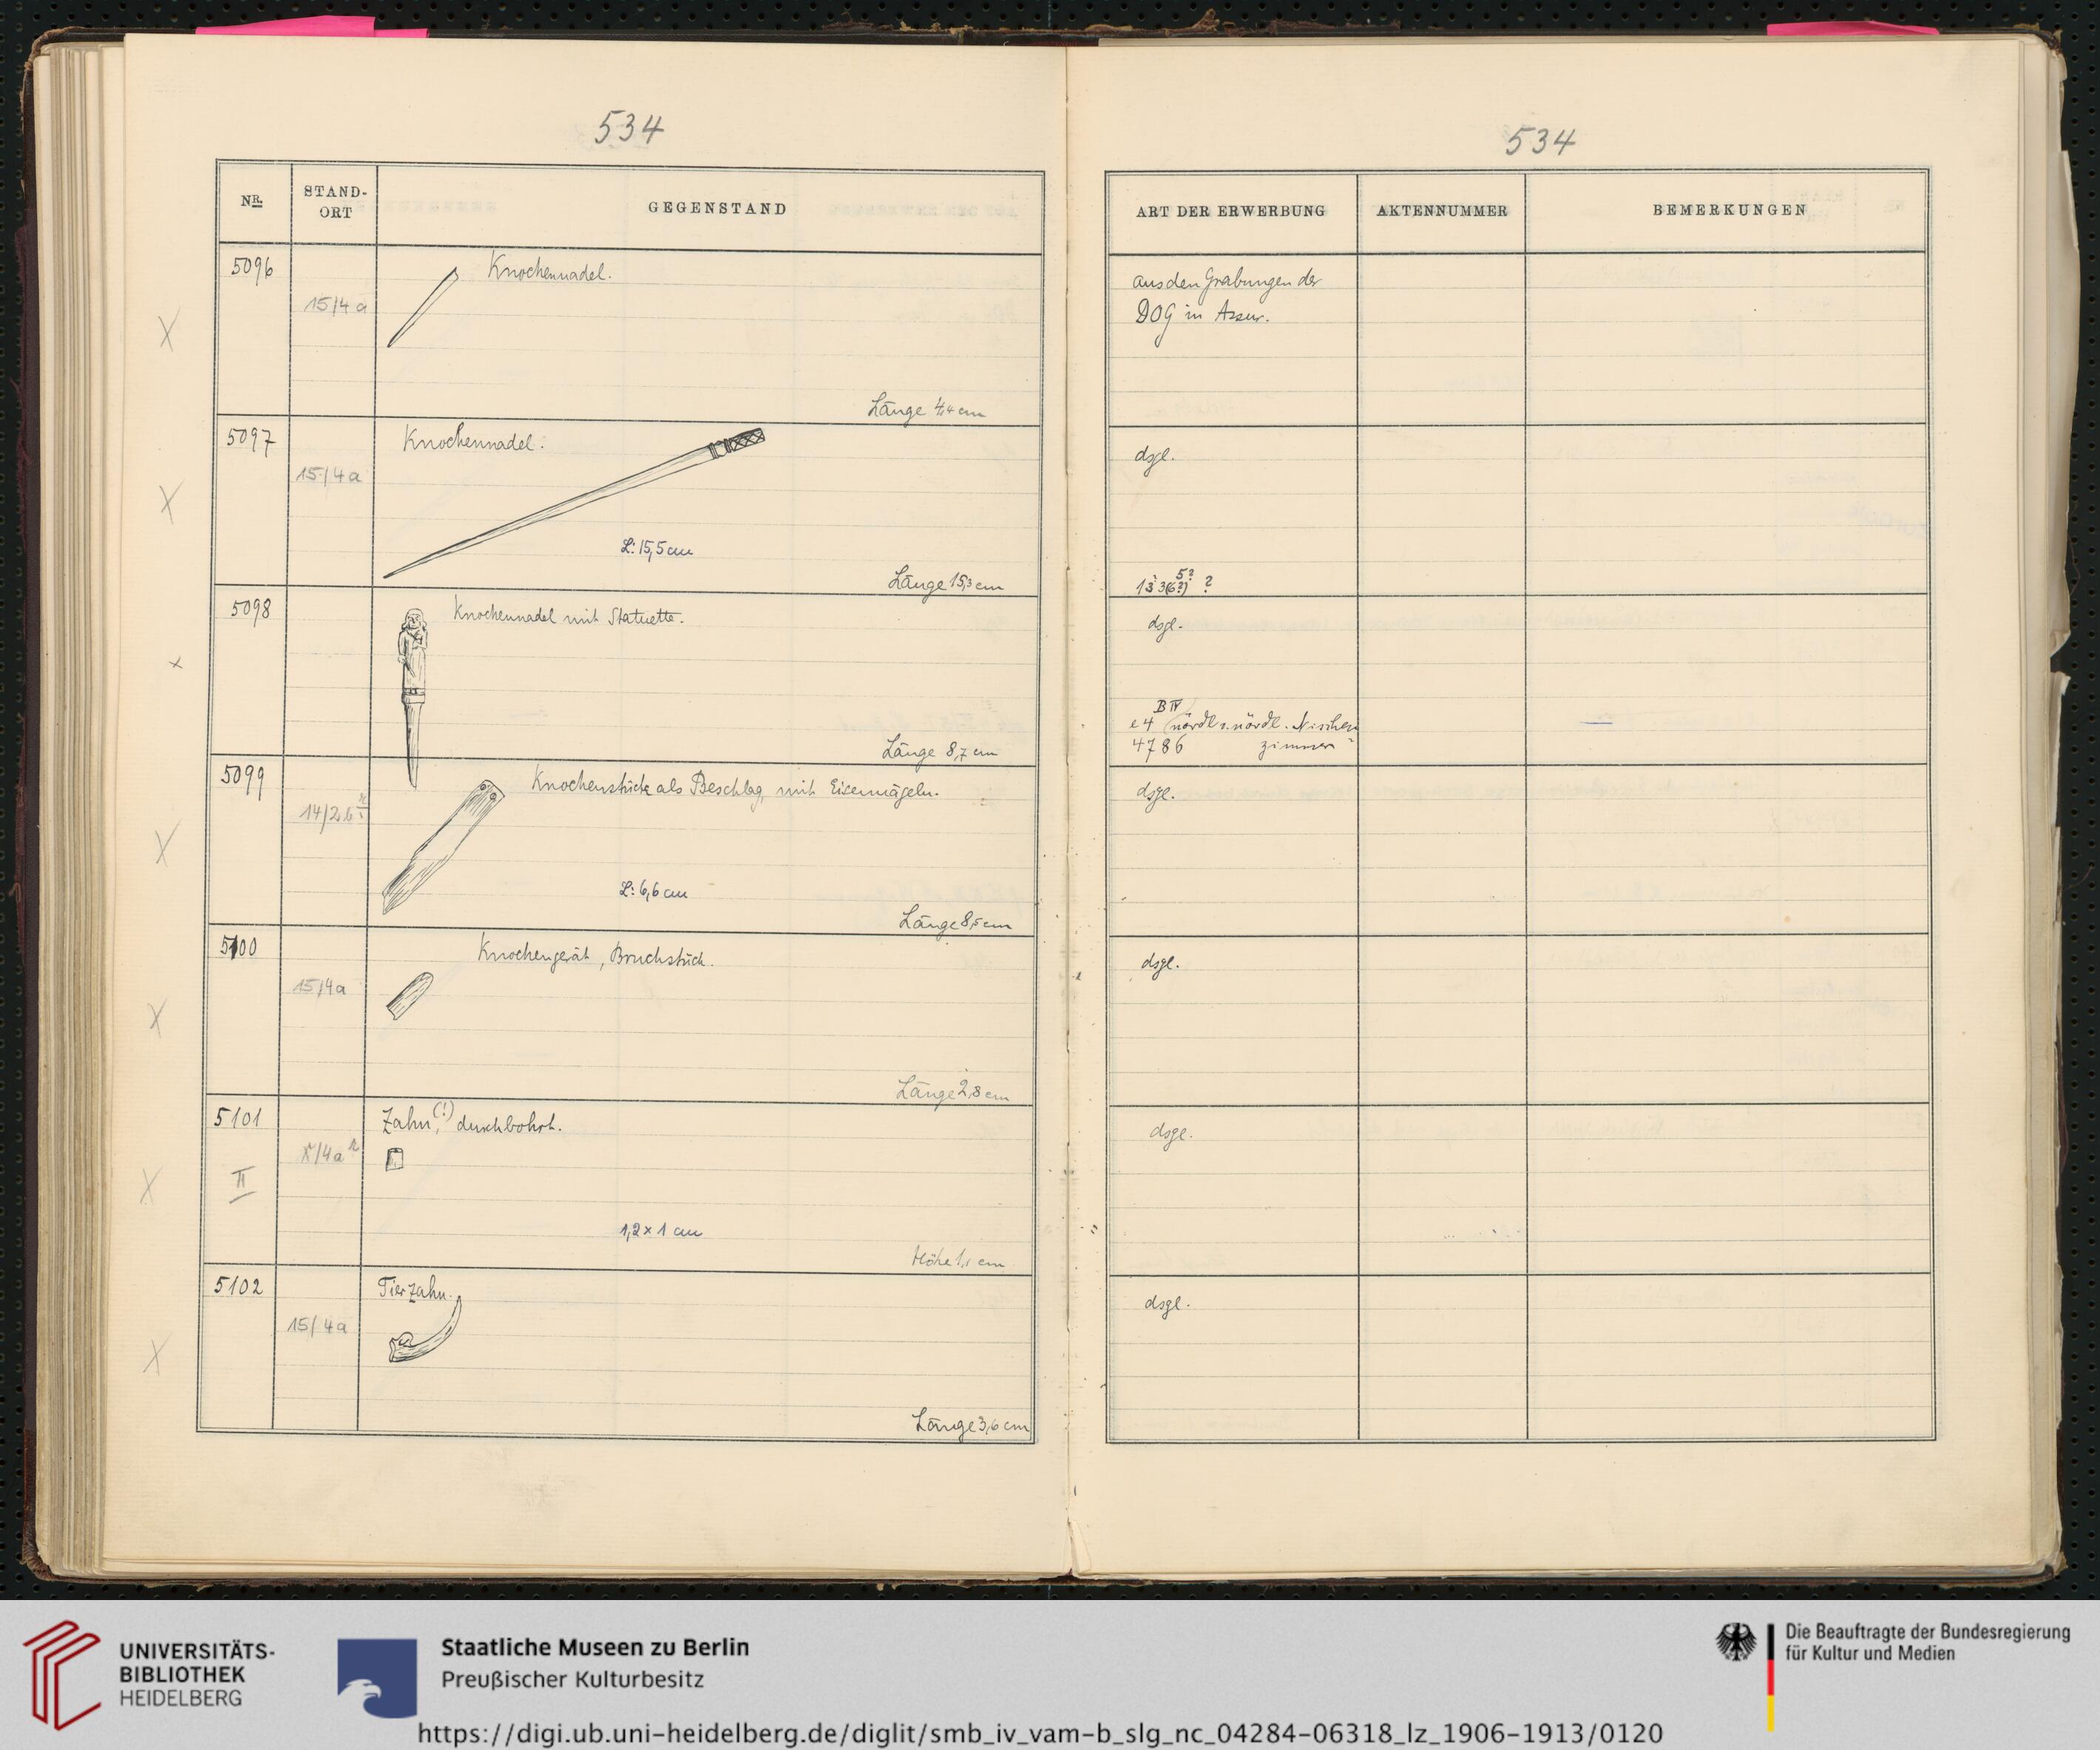 534
NR.
STAND-
ORT
GEGENSTAND
5096
15/4a
Knochennadel.
Länge 4,4 cm
5097
15/4a
Knochennadel.
L: 15,5 cm
Länge 15,3 cm
5098
Knochennadel mit Statuette.
Länge 8,7 cm
5099
14/2b
Knochenstück als Beschlag, mit Eisennägeln.
L: 6,6 cm
Länge 8,5 cm
5100
15/4a
Knochengerät, Bruchstück.
Länge 2,8 cm
5101
II
/4a
Zahn, (!) durchbohrt.
1,2 x 1 cm
Höhe 1,1 cm
5102
15/4a
Tierzahn.
Länge 3,6 cm
534
ART DER ERWERBUNG
AKTENNUMMER
BEMERKUNGEN
aus den Grabungen der
DOG in Assur.
dsgl.
5?
?
dsgl.
B IV
e4 nördl. nördl. Nischen
4786 zimmer
dsgl.
dsgl.
dsgl.
dsgl.
UNIVERSITÄTS-
BIBLIOTHEK
HEIDELBERG
Staatliche Museen zu Berlin
Preußischer Kulturbesitz
Die Beauftragte der Bundesregierung
für Kultur und Medien
https://digi.ub.uni-heidelberg.de/diglit/smb_iv_vam-b_slg_nc_04284-06318_lz_1906-1913/0120